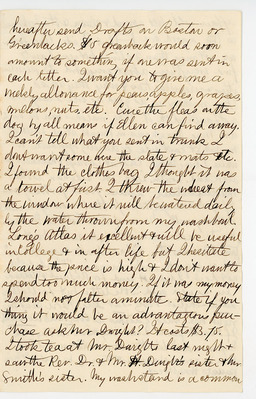 hereafter send Drafts on Boston or
Greenbacks. $5 greenback would soon
amount to something, if one was sent in
each letter. I want you to give me a
weekly allowance for pears, apples, grapes,
melons, nuts, etc. Cure the fleas on the
dog by all means if Ellen can find away.
I can't tell what you sent in trunk I
don't want some here the slate & mits etc.
I found the clothes bag I thought it was
a towel at first. I threw the from
the window where it will be watered daily
by the water thrown from my washbowl.
Long's Atlas is excellent & will be useful
in College & in after life but I hesitate
because the price is high & I don't want to
spend too much money. If it was my money
I should not falter a minute. State if you
think it would be an advantageous pur-
chase ask Mr Dwight? It costs $3.75.
I took tea at Mr. Dwights last night &
saw the Rev. Dr. & Mr. H. Dwight's sister & Mr
Smith's sister. My washstand is a common